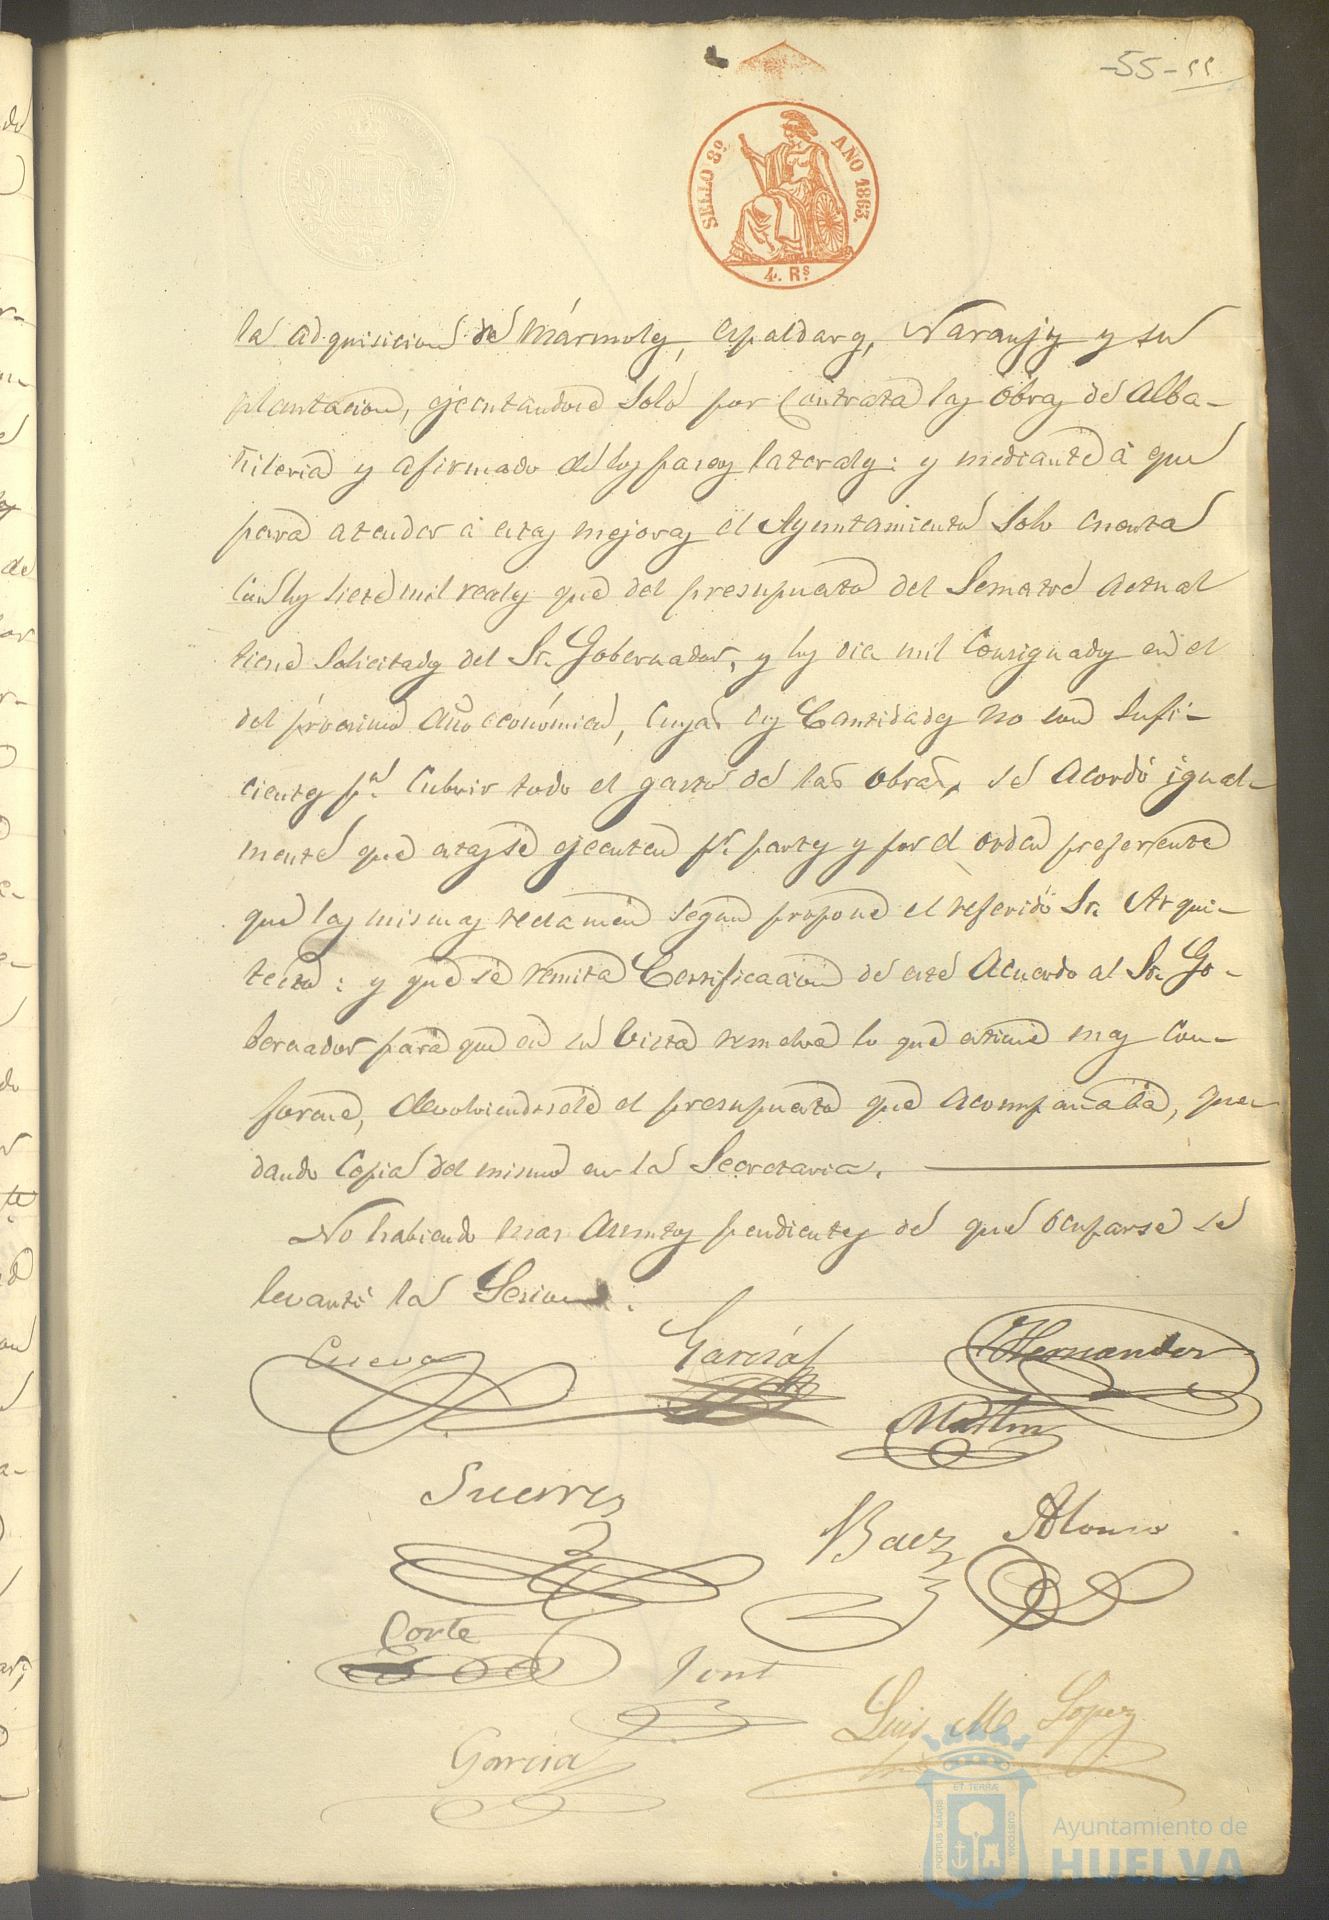 -55-
SELLO 8º AÑO 1863.
4. Rˢ
la adquisicion de Mármoles, espaldares, Naranjos y su
plantacion, ejecutandose solo por Contrata las obras de Alba-
ñileria y afirmado de los paseos laterales: y mediante á que
para atender á estas mejoras el Ayuntamiento solo cuenta
con los siete mil reales que del presupuesto del Semestre actual
tiene solicitados del Sr. Gobernador, y los diez mil consignados en el
del procsimo año económico, cuyas Cantidades no son sufi-
cientes pᵃ. cubrir todo el gasto de las obras, se acordó igual-
mente que estas se ejecuten pʳ. partes y por el orden preferente
que las mismas reclamen segun propone el referido Sr. Arqui-
tecto: y que se remita Certificacion de este Acuerdo al Sr. Go-
bernador para que en su vista resuelva lo que estime mas con-
forme, devolviendosele el presupuesto que acompañaba, que-
dando Copia del mismo en la Secretaria.
No habiendo mas asuntos pendientes de que ocuparse se
levantó la Sesion.
Cueva Garcia Hernandez
Martin
Suerres
Baez Alonso
Corte
Jont
Garcia Luis M Lopez
PORTUS MARIS ET TERRÆ CUSTODIA
Ayuntamiento de
HUELVA